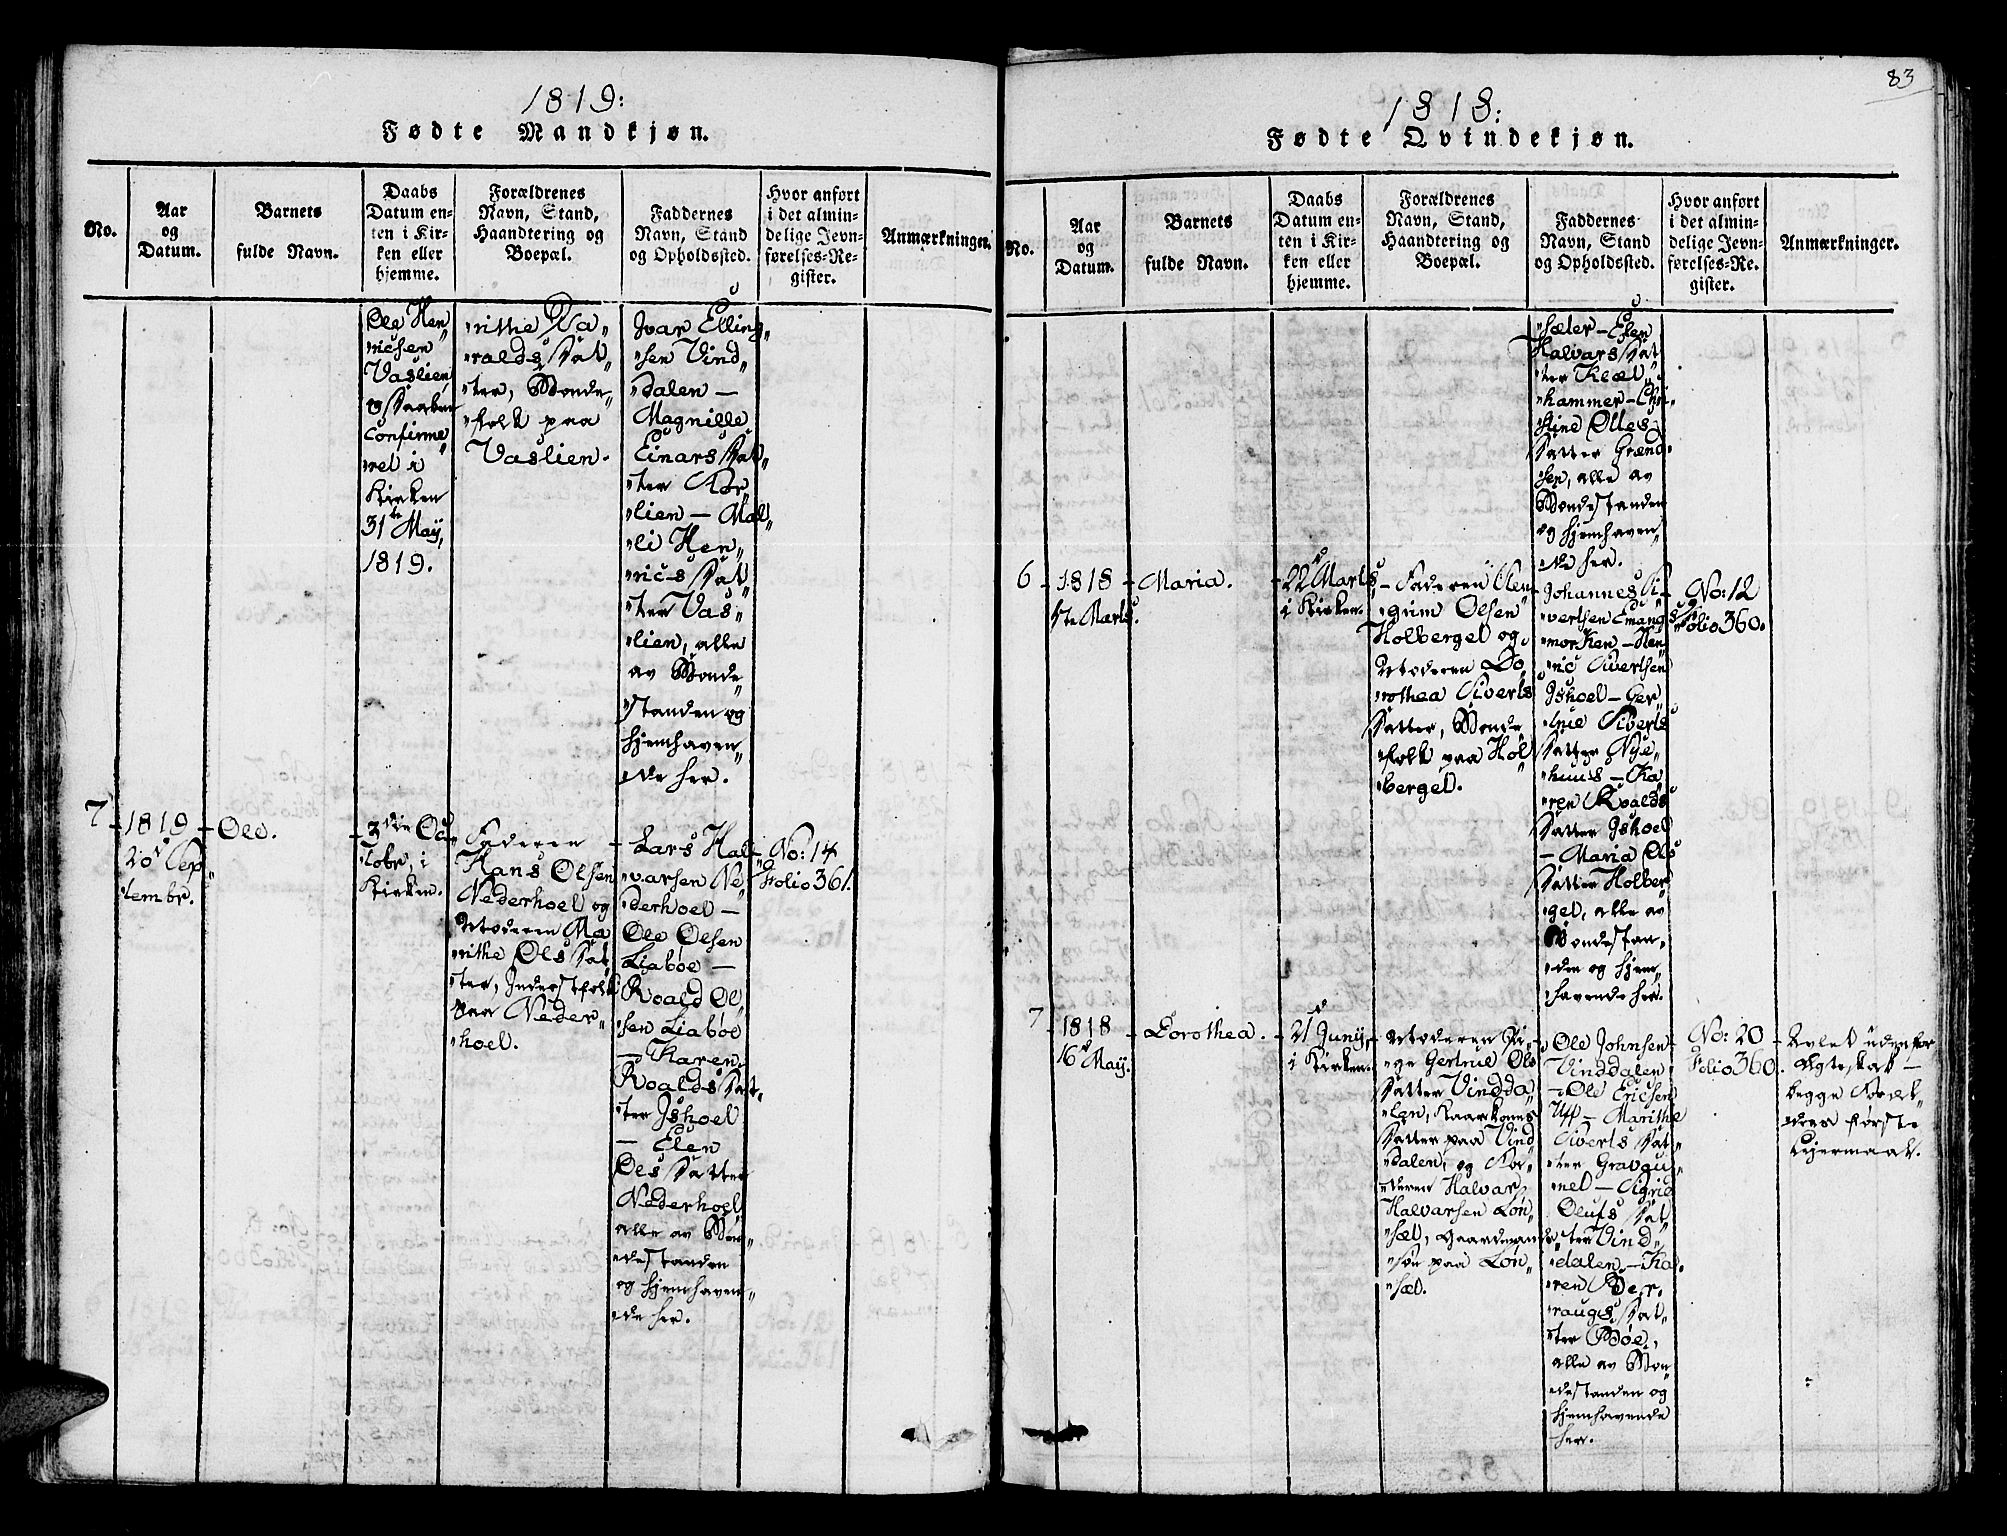 1819:
Fødte Mandkjøn.
No.
Aar
og
Datum.
Barnets
fulde Navn.
Daabs
Datum en-
ten i Kir-
ken eller
hjemme.
Forældrenes
Navn, Stand,
Haandtering og
Boepæl.
Faddernes
Navn, Stand
og Opholdssted.
Hvor anført
i det almin-
delige Jevn-
førelses-Re-
gister.
Anmærkninger.
Ole Hen„
„ricsen
Vaslien
og saaben
confirme„
„ret i
Kirken
31te Maij,
1819.
„rithe
„ralds Dat„
„ter, Bonde„
„folk paa
Vaslien.
Ivar Elling„
„sen Vind„
„dalen —
Magnille
Einars Dat„
„ter Kor„
„lien — Mal„
„li Hen„
„rics Dat„
„ter Vas„
„lien, alle
av Bonde„
„standen og
hjemhaven„
„de her.
7 - 1819
20d Sep„
„tembr.
- Ole.
- 3die Oc„
„tobr. i
Kirken.
- Faderen
Hans Olsen
Nederhoel og
Moderen Ma„
„rithe Ols Dat„
„ter, Inderstfolk
paa Neder„
„hoel.
- Lars Hal„
„varsen Ne„
„derhoel —
Ole Olsen
Liabøe —
Roald Ol„
„sen Liabøe
— Karen
Roalds Dat„
„ter Ishoel
— Elen
Ols Datter
Nederhoel
alle av Bon„
„destanden
og hjemhaven„
„de her.
- No: 14
Folio 361.
83
1818:
Fødte Qvindekjøn.
No.
Aar
og
Datum.
Barnets
fulde Navn.
Daabs
Datum en-
ten i Kir-
ken eller
hjemme.
Forældrenes
Navn, Stand,
Haandtering og
Boepæl.
Faddernes
Navn, Stand
og Opholdssted.
Hvor anført
i det almin-
delige Jevn-
førelses-Re-
gister.
Anmærkninger.
„sæter — Elen
Halvars Dat„
„ter
hammer — Chri„
„stine Olles
Datter Grænd„
„sen, alle av
Bondestanden
og hjemhaven„
„de her.
6 - 1818
7te Marts.
- Maria.
- 22d Marts,
i Kirken.
- Faderen
„gum Olsen
Holbergel og
Moderen Do„
„rothea Siverts
Datter, Bonde„
„folk paa Hol„
„bergel.
- Johannes Si„
„vertsen Emang„
„morken — Hen„
„ric Sivertsen
Ishoel — Ger„
„true Siverts
Datter Nye„
„huus — Ka„
„ren Roalds
Datter Ishoel
— Maria Ols
Datter Holber„
„gel, alle av
Bondestan„
„den og hjem„
„havende her.
- No: 12
Folio 360.
7 - 1818
16d Maij.
- Dorothea.
- 21d Junij,
i Kirken.
- Moderen Pi„
„ge Gertrue Ols
Datter Vindda„
„len,
Datter paa Vind„
„dalen, og Fa„
„deren Halvar
Halvarsen Løn„
„sæt, Gaardmands„
„søn paa Løn„
„sæt.
- Ole Johnsen
Vinddalen
— Ole Ericsen
— Marithe
Siverts Dat„
„ter Gravgu„
„nel — Sigrid
Olufs Dat„
„ter Vind„
„dalen — Ka„
„ren Ber„
„raugs Dat„
„ter Bøe,
alle av Bon„
„destanden og
hjemhavende
her.
- No: 20
Folio 360.
- Avlet udenfor
Ægteskab —
begge Foræl„
„dres første
Lejermaal.